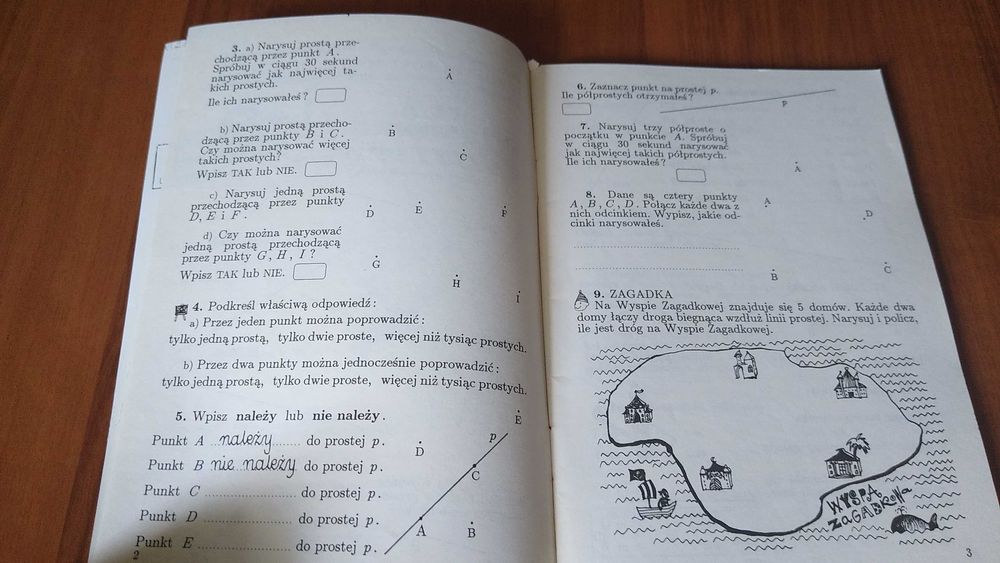 3. a) Narysuj prostą prze-
chodzącą przez punkt A.
Spróbuj w ciągu 30 sekund
narysować jak najwięcej ta-
kich prostych.
Ile ich narysowałeś?
A
b) Narysuj prostą przecho-
dzącą przez punkty B i C.
Czy można narysować więcej
takich prostych?
Wpisz TAK lub NIE.
B
C
c) Narysuj jedną prostą
przechodzącą przez punkty
D, E i F.
D E F
d) Czy można narysować
jedną prostą przechodzącą
przez punkty G, H, I?
Wpisz TAK lub NIE.
G
H
I
4. Podkreśl właściwą odpowiedź:
a) Przez jeden punkt można poprowadzić:
tylko jedną prostą, tylko dwie proste, więcej niż tysiąc prostych.
b) Przez dwa punkty można jednocześnie poprowadzić:
tylko jedną prostą, tylko dwie proste, więcej niż tysiąc prostych.
5. Wpisz należy lub nie należy.
Punkt A ...należy....... do prostej p.
Punkt B nie należy. do prostej p.
Punkt C ........................ do prostej p.
Punkt D ........................ do prostej p.
Punkt E ........................ do prostej p.
E
p
D
C
A
B
2
6. Zaznacz punkt na prostej p.
Ile półprostych otrzymałeś?
p
7. Narysuj trzy półproste o
początku w punkcie A. Spróbuj
w ciągu 30 sekund narysować
jak najwięcej takich półprostych.
Ile ich narysowałeś?
A
8. Dane są cztery punkty
A, B, C, D. Połącz każde dwa z
nich odcinkiem. Wypisz, jakie od-
cinki narysowałeś.
A
D
B
C
9. ZAGADKA
Na Wyspie Zagadkowej znajduje się 5 domów. Każde dwa
domy łączy droga biegnąca wzdłuż linii prostej. Narysuj i policz,
ile jest dróg na Wyspie Zagadkowej.
WYSPA
ZAGADKOWA
3